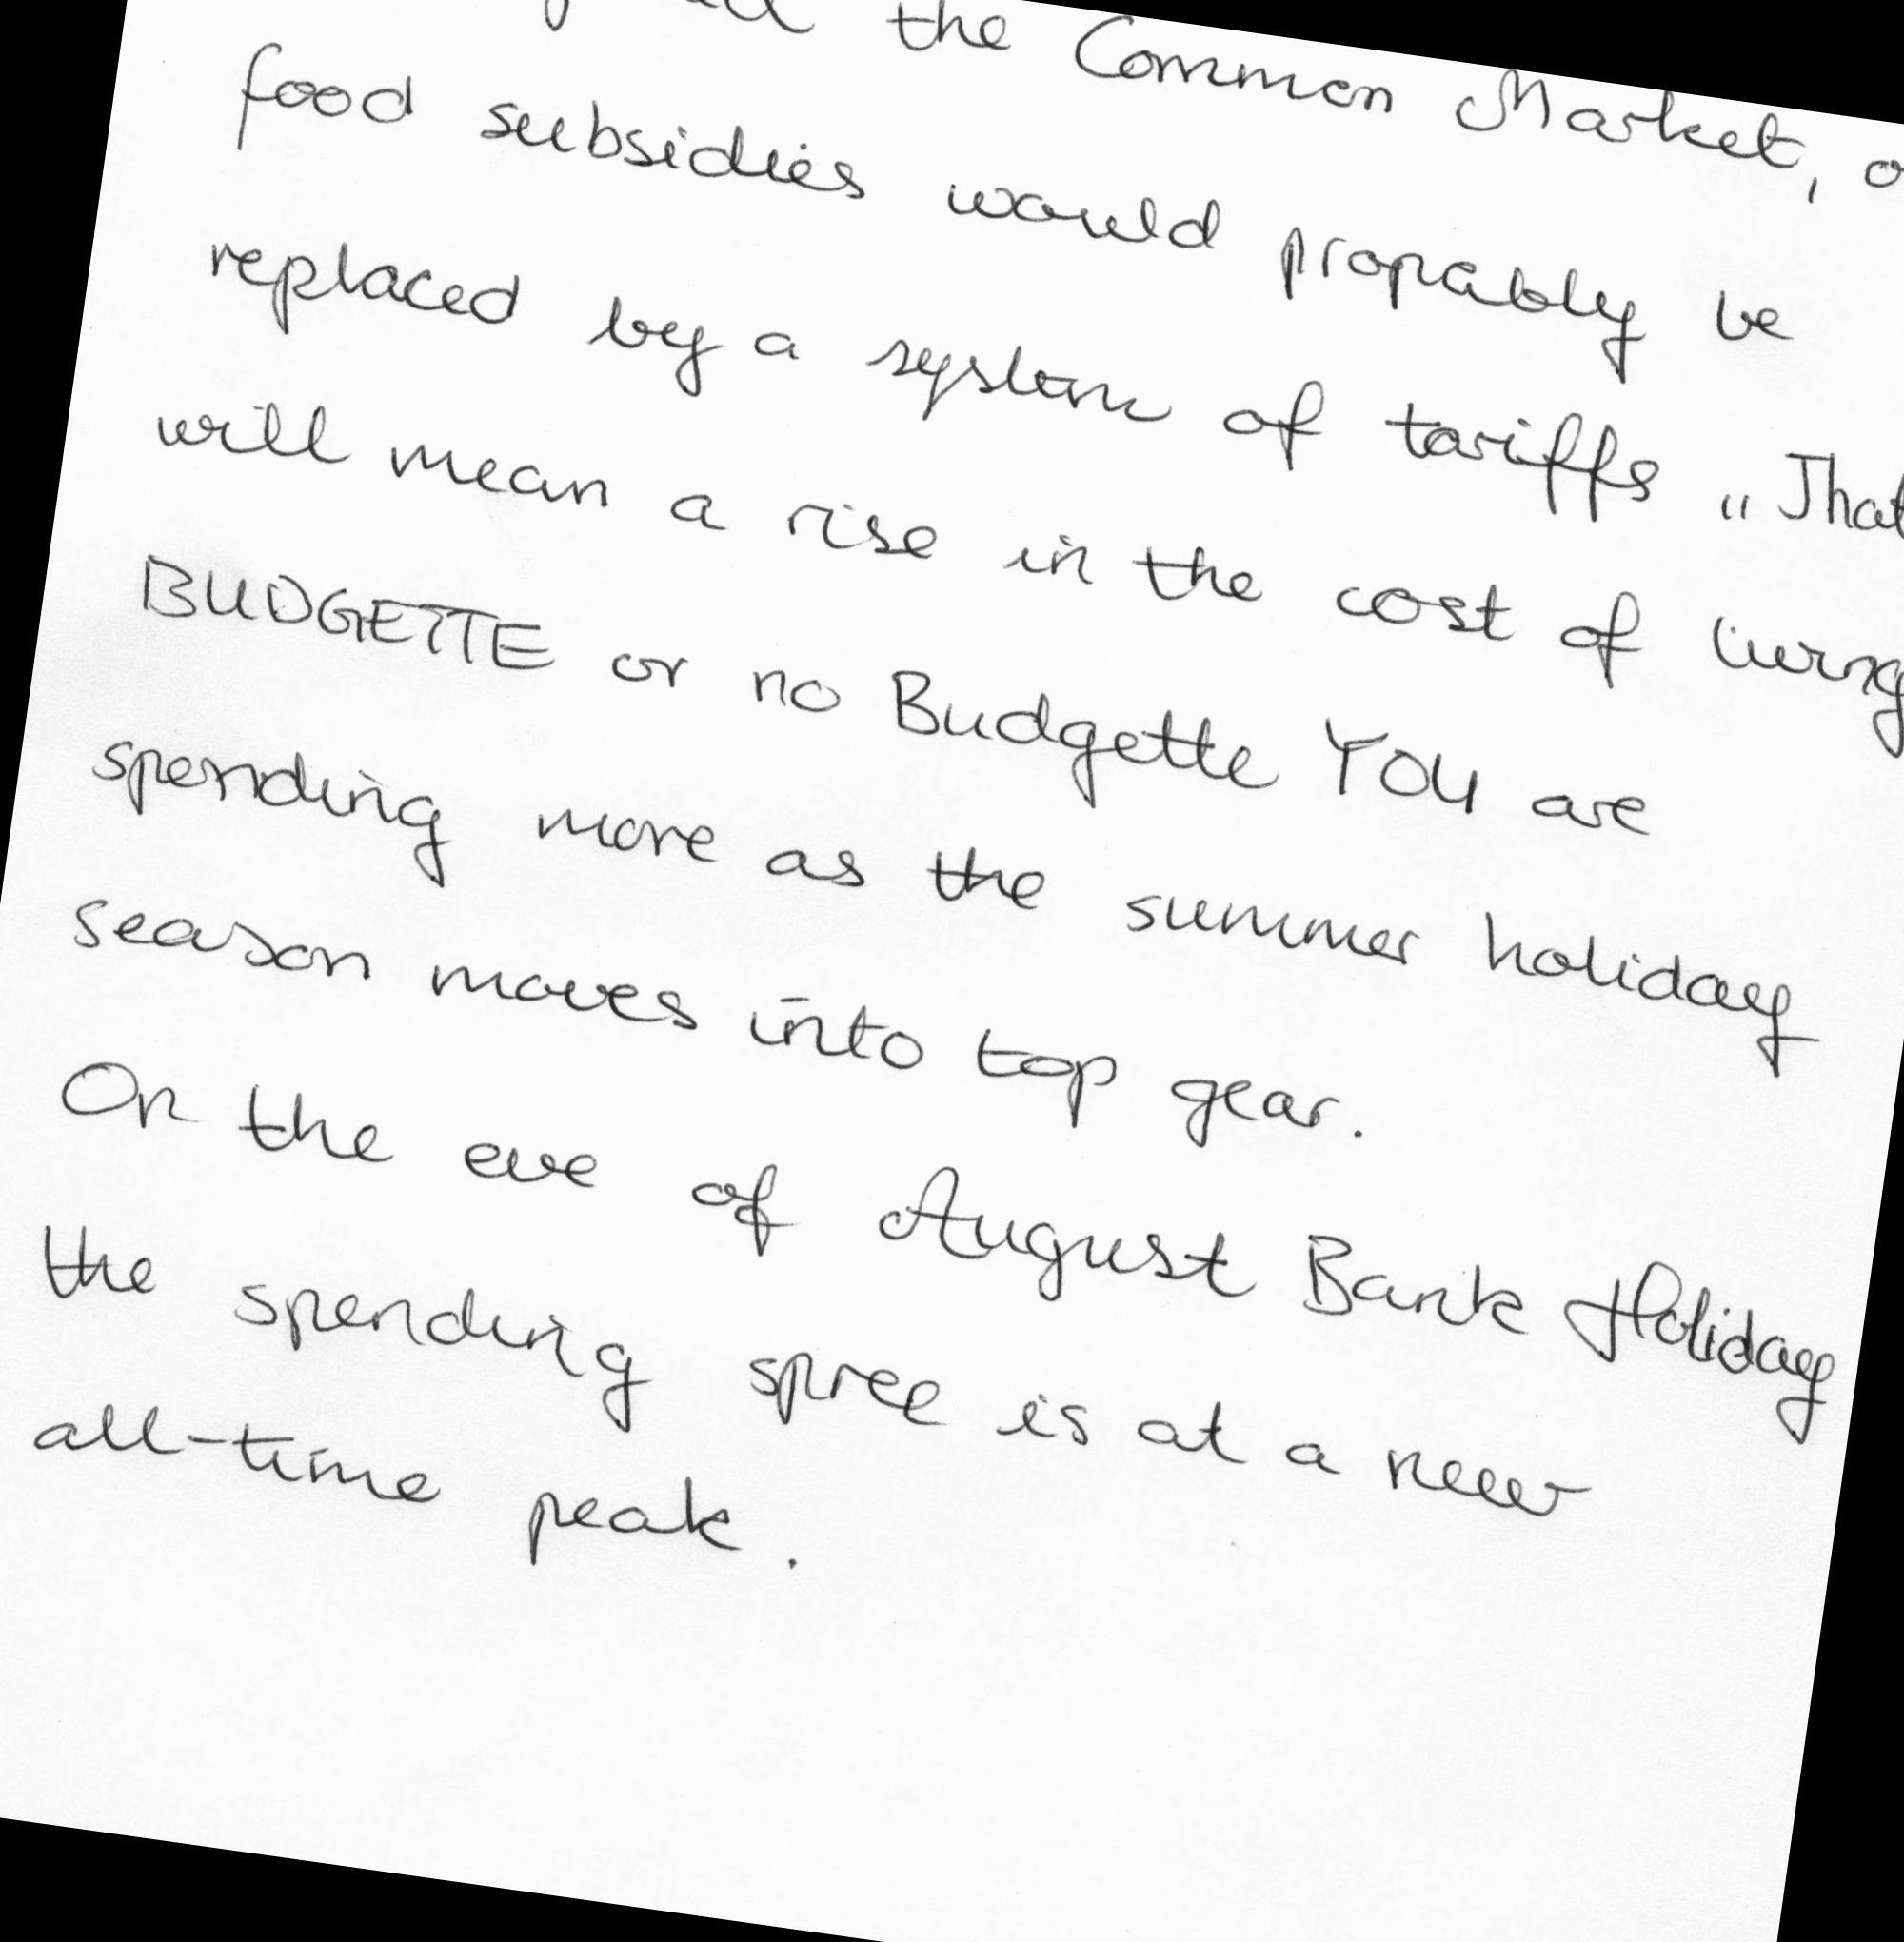 the Common Market,
food subsidies would propably be
replaced by a system of tariffs „That
will mean a rise in the cost of living
BUDGETTE or no Budgette YOU are
spending more as the summer holiday
season moves into top gear.
On the eve of August Bank Holiday
the spending spree is at a new
all-time peak.